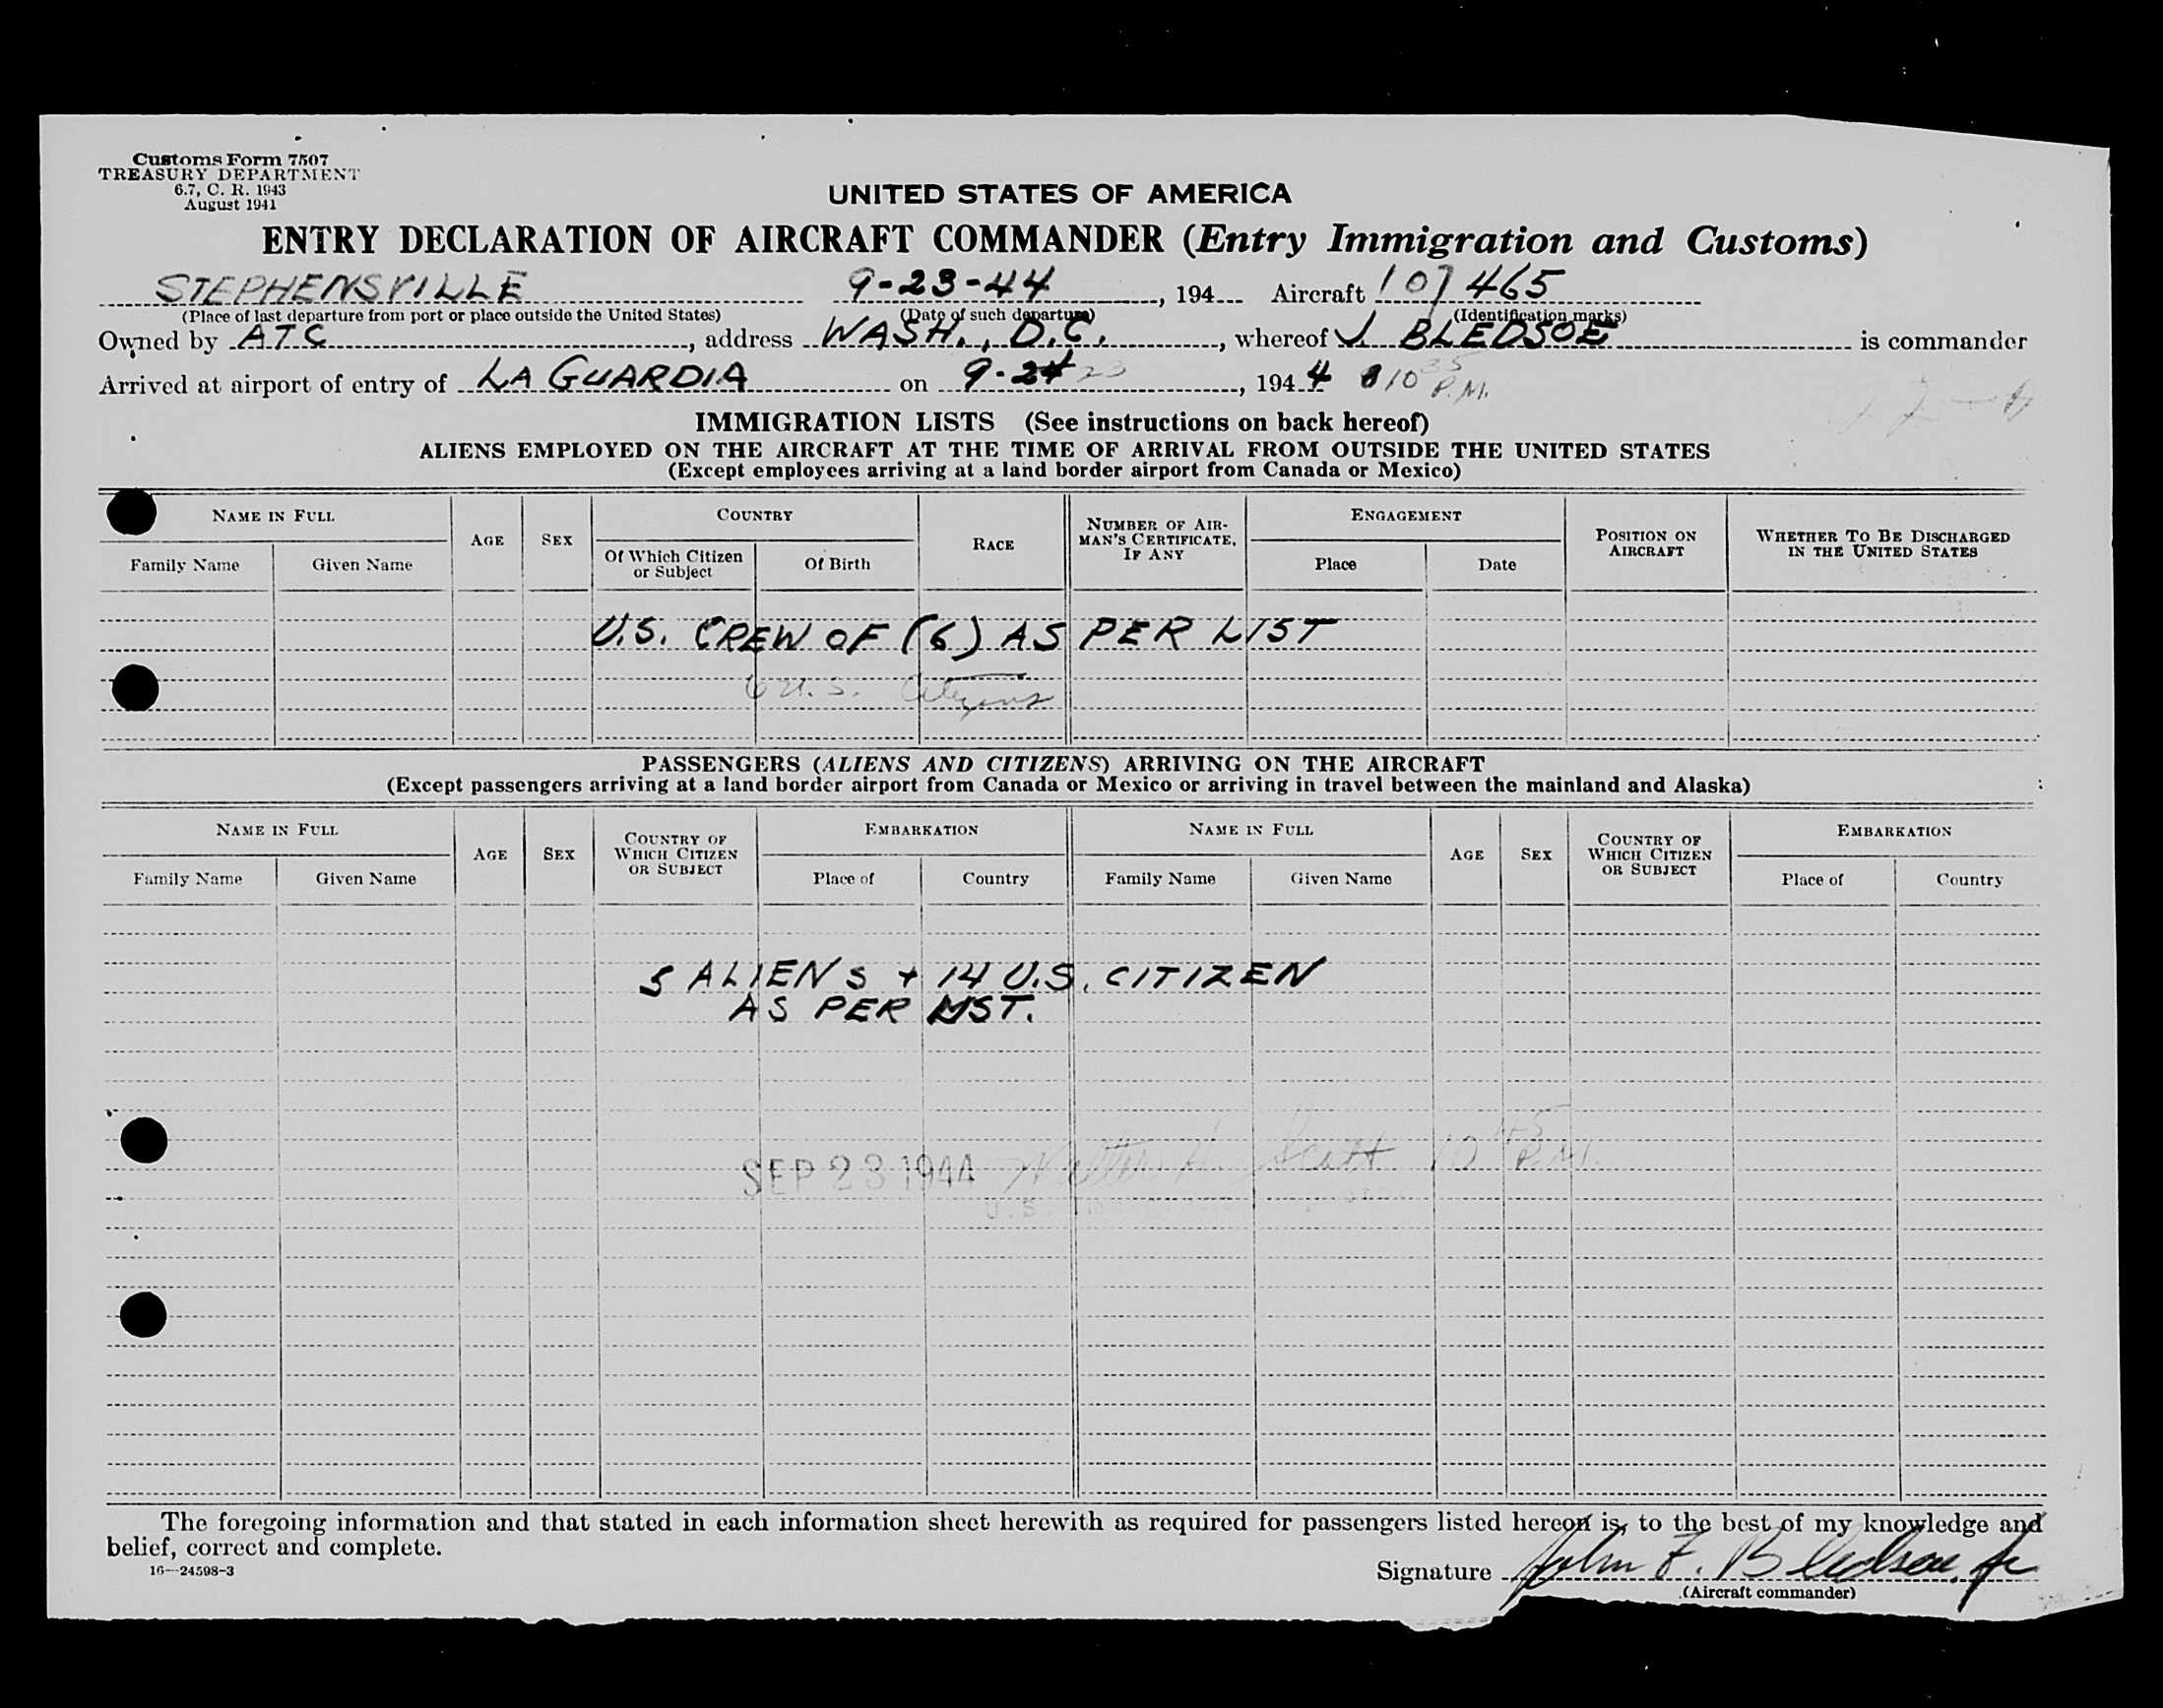 Customs Form 7507
TREASURY DEPARTMENT
6.7, C. R. 1943
August 1941
UNITED STATES OF AMERICA
ENTRY DECLARATION OF AIRCRAFT COMMANDER (Entry Immigration and Customs)
STEPHENSVILLE 9-23-44, 194 Aircraft 107465
(Place of last departure from port or place outside the United States) (Date of such departure) (Identification marks)
Owned by ATC, address WASH., D.C., whereof J. BLEDSOE is commander
Arrived at airport of entry of LA GUARDIA on 9-24 23, 1944 10 35 P.M.
IMMIGRATION LISTS (See instructions on back hereof)
ALIENS EMPLOYED ON THE AIRCRAFT AT THE TIME OF ARRIVAL FROM OUTSIDE THE UNITED STATES
(Except employees arriving at a land border airport from Canada or Mexico)
NAME IN FULL AGE SEX COUNTRY RACE NUMBER OF AIRMAN'S CERTIFICATE, IF ANY ENGAGEMENT POSITION ON AIRCRAFT WHETHER TO BE DISCHARGED IN THE UNITED STATES
Family Name Given Name Of Which Citizen or Subject Of Birth Place Date
U.S. CREW OF (6) AS PER LIST
6 U.S. Citizens
PASSENGERS (ALIENS AND CITIZENS) ARRIVING ON THE AIRCRAFT
(Except passengers arriving at a land border airport from Canada or Mexico or arriving in travel between the mainland and Alaska)
NAME IN FULL AGE SEX COUNTRY OF WHICH CITIZEN OR SUBJECT EMBARKATION NAME IN FULL AGE SEX COUNTRY OF WHICH CITIZEN OR SUBJECT EMBARKATION
Family Name Given Name Place of Country Family Name Given Name Place of Country
5 ALIENS + 14 U.S. CITIZEN
AS PER LIST.
SEP 23 1944 Walter H. Scott 10 45 P.M.
U.S.
The foregoing information and that stated in each information sheet herewith as required for passengers listed hereon is, to the best of my knowledge and
belief, correct and complete.
16—24598-3
Signature John F. Bledsoe, Jr
(Aircraft commander)